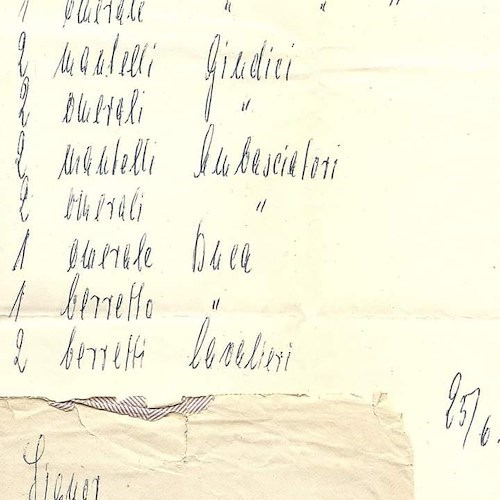 1 omerale " " "
2 mantelli Giudici
2 omerali "
2 mantelli Ambasciatori
2 omerali "
1 omerale Duca
1 berretto "
2 berretti Cavalieri
25/6.
Signor